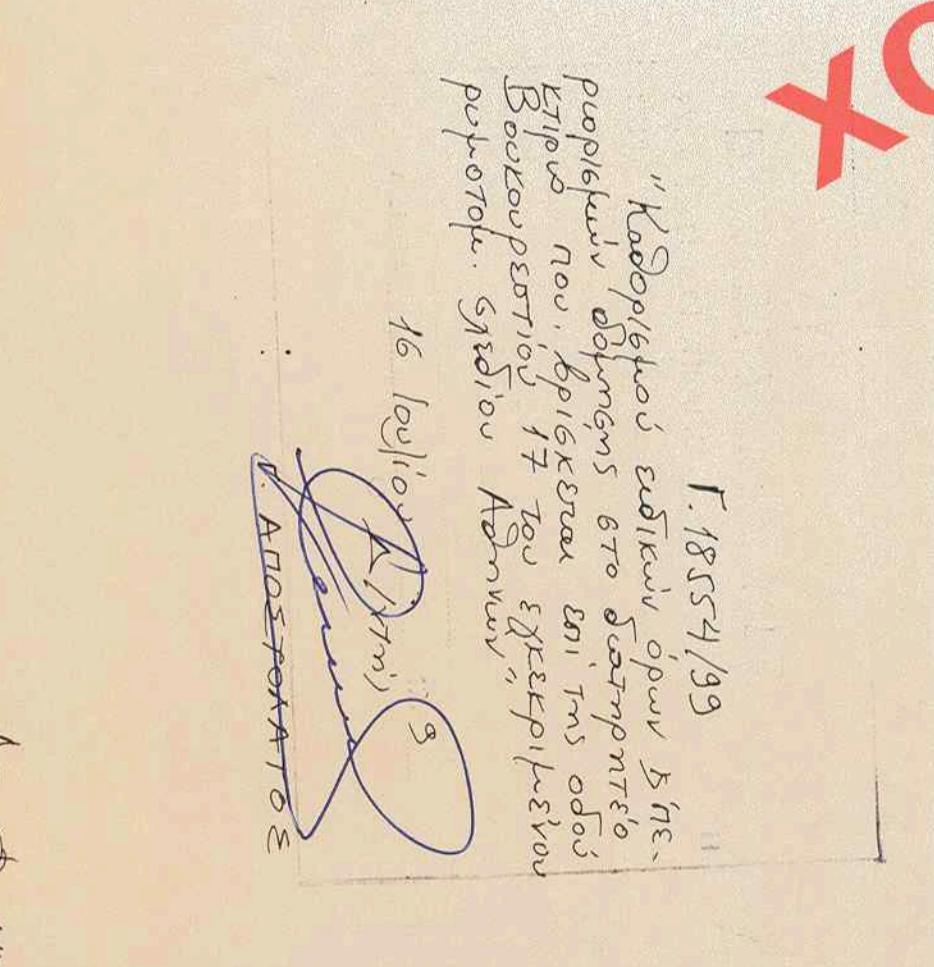 Γ. 18554/99
"Καθορισμού ειδικών όρων & πε-
ριορισμών δόμησης στο διατηρητέο
κτίριο που βρίσκεται επί της οδού
Βουκουρεστίου 17 του εγκεκριμένου
ρυμοτομ. σχεδίου Αθηνών"
16 Ιουλίου 9
Α. ΑΠΟΣΤΟΛΑΤΟΣ
ΧΟ